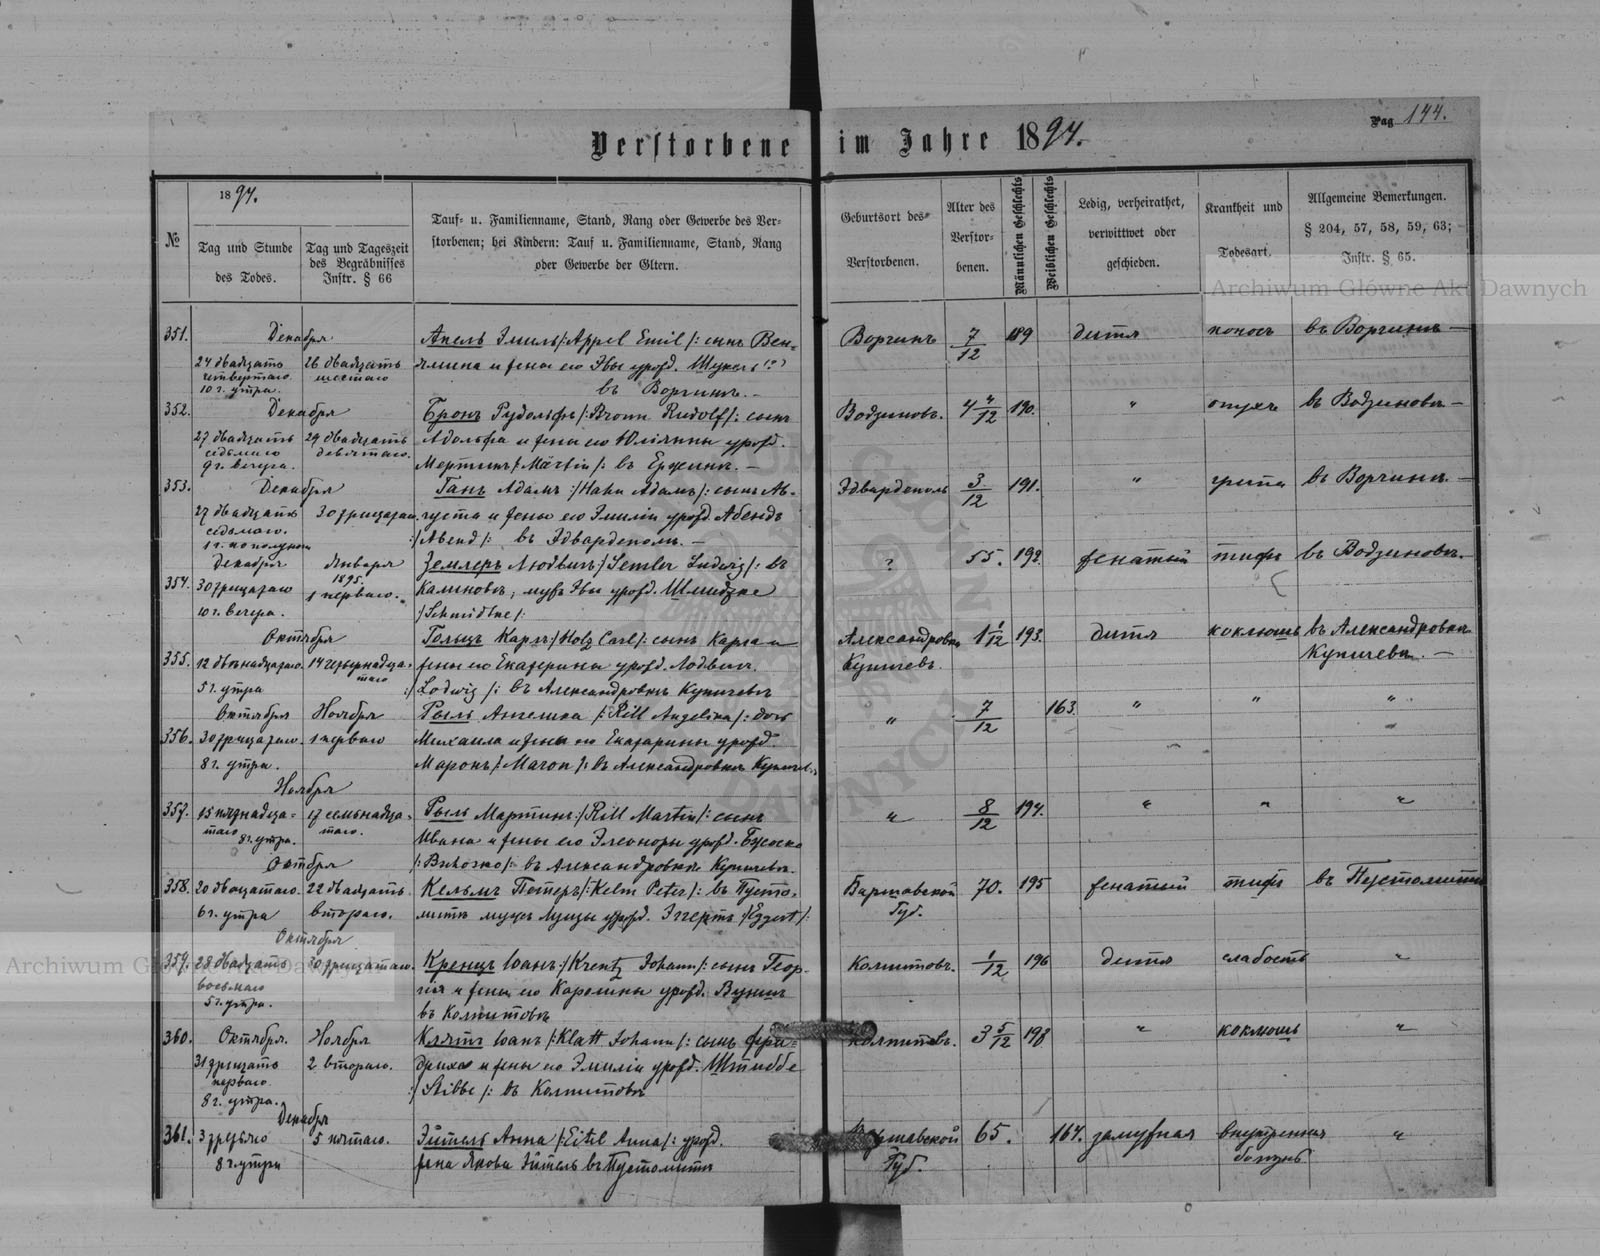 Pag 144.
Verstorbene im Jahre 1894.
№
1894.
Tag und Stunde
des Todes.
Tag und Tageszeit
des Begräbnisses
Instr. § 66
Tauf- u. Familienname, Stand, Rang oder Gewerbe des Ver-
storbenen; bei Kindern: Tauf u. Familienname, Stand, Rang
oder Gewerbe der Eltern.
Geburtsort des
Verstorbenen.
Alter des
Verstor-
benen.
Männlichen Geschlechts
Weiblichen Geschlechts
Ledig, verheirathet,
verwittwet oder
geschieden.
Krankheit und
Todesart.
Allgemeine Bemerkungen.
§ 204, 57, 58, 59, 63;
Instr. § 65.
Archiwum Główne Akt Dawnych
351. Декабря Апель Эмиль /: Appel Emil /: сынъ Вен= Ворчинъ 7/12 189 дитя поносъ въ Ворчинъ —
24 двадцать 26 двадцать ямина и жены его Эвы урожд.
четвертаго шестаго въ Ворчинъ. —
10 г. утра.
352. Декабря Бронъ Рудольфъ /: Bronn Rudolf /: сынъ Водзиновъ. 4 190. " опухъ въ Водзиновъ —
27 двадцать 29 двадцать Адольфа и жены его Юліянны урожд.
седьмаго девятаго. Мертинъ /: Märtin /: въ —
9 г. вечера.
353. Декабря Ганъ Адамъ :/ Hahn Адамъ /: сынъ Ав- Эдвардполь 3/12 191. " грипа въ Ворчинъ. —
27 двадцать 30 тридцатаго. густа и жены его Эмиліи урожд. Абендъ
седьмаго. :/ Abend /: въ Эдвардполъ. —
1 г. по полудни
354. Декабря Января Землеръ Людвигъ :/ Semler Ludwig /: въ ? 55. 192. женатый тифъ въ Водзиновъ. —
30 тридцатаго 1895. 1 перваго. Калиновъ, мужъ Эвы урожд. Шмидтке
10 г. вечера. :/ Schmidtke /:
355. Октября Гольцъ Карлъ :/ Holz Carl /: сынъ Карла и Александровка 1 1/12 193. дитя коклюшъ въ Александровкъ
12 двѣнадцатаго. 14 четырнадца- жены его Екатерины урожд. Лодвигъ Купичевъ. Купичевъ. —
5 г. утра таго :/ Lodwig /: въ Александровкъ Купичевъ
356. Октября Ноября Рыль Ангелика /: Rill Angelika /: дочь " 7/12 163. " " "
30 тридцатаго. 1 перваго Михаила и жены его Екатерины урожд.
8 г. утра. Маронъ /: Maron /: въ Александровкъ
357. Ноября Рыль Мартинъ :/ Rill Martin /: сынъ " 8/12 194. " " "
15 пятнадца= 17 семьнадца- Ивана и жены его Элеоноры урожд.
таго 8 г. утра. таго. въ Александровкъ Купичевъ.
358. Октября Кельмъ Петеръ /: Kelm Peter /: въ Пусто- Варшавской 70. 195 женатый тифъ въ Пустомитъ
20 двацатаго. 22 двадцать митъ мужъ Луизы урожд. Эггертъ :/ Eggert /: Губ.
6 г. утра втораго.
359. Октября Кренцъ Іоанъ :/ Krentz Johann /: сынъ Геор- Колпитовъ. 1/12 196 дитя слабость "
28 двадцать 30 тридцатаго. гія и жены его Каролины урожд.
восьмаго въ Колпитовъ
5 г. утра.
Archiwum Główne Akt Dawnych
360. Октября. Ноября Клятъ Іоанъ /: Klatt Johann /: сынъ Фри= Колпитовъ. 3 5/12 198 " коклюшъ "
31 тридцать 2 втораго. дриха и жены его Эмиліи урожд. Штиббе
перваго :/ Stibbe /: въ Колпитовъ
8 г. утра.
361. Декабря Эйтель Анна /: Eitel Anna /: урожд. Варшавской 65. 164. замужная внутренная "
3 третьяго 5 пятаго. жена Якова Эйтель въ Пустомитъ Губ. болѣзнь
8 г. утра